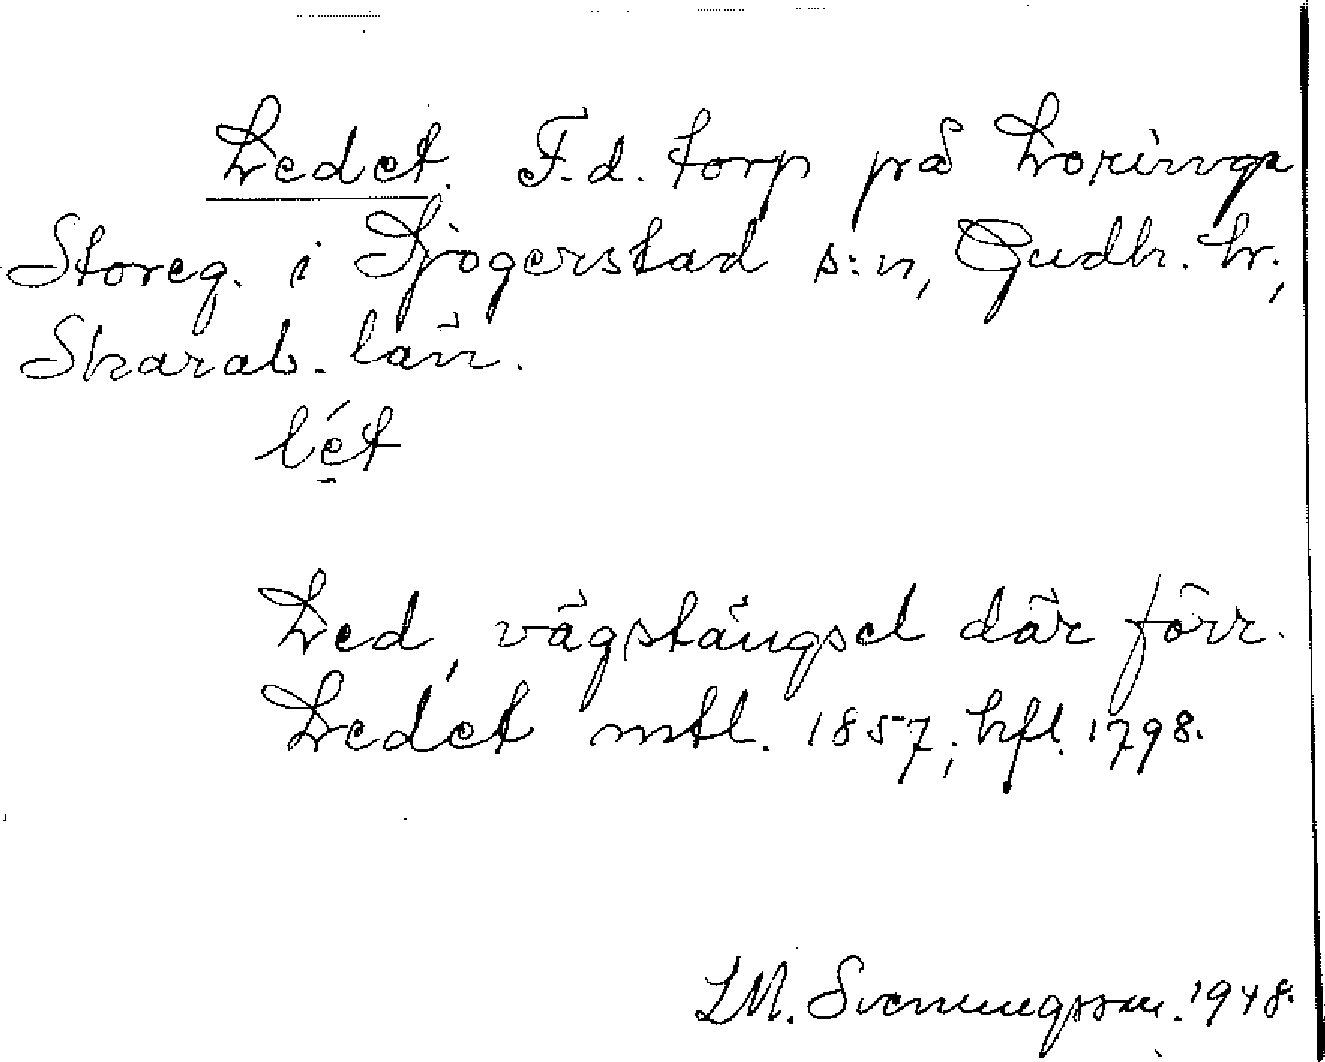 Ledet. F.d. torp på Loringa
Storeg. i Sjogerstad s:n, Gudh. hr.,
Skarab. län.
lét
Led, vägstängsel där förr.
Ledet mtl. 1857; hfl. 1798.
L.M. Svenungsson. 1948.